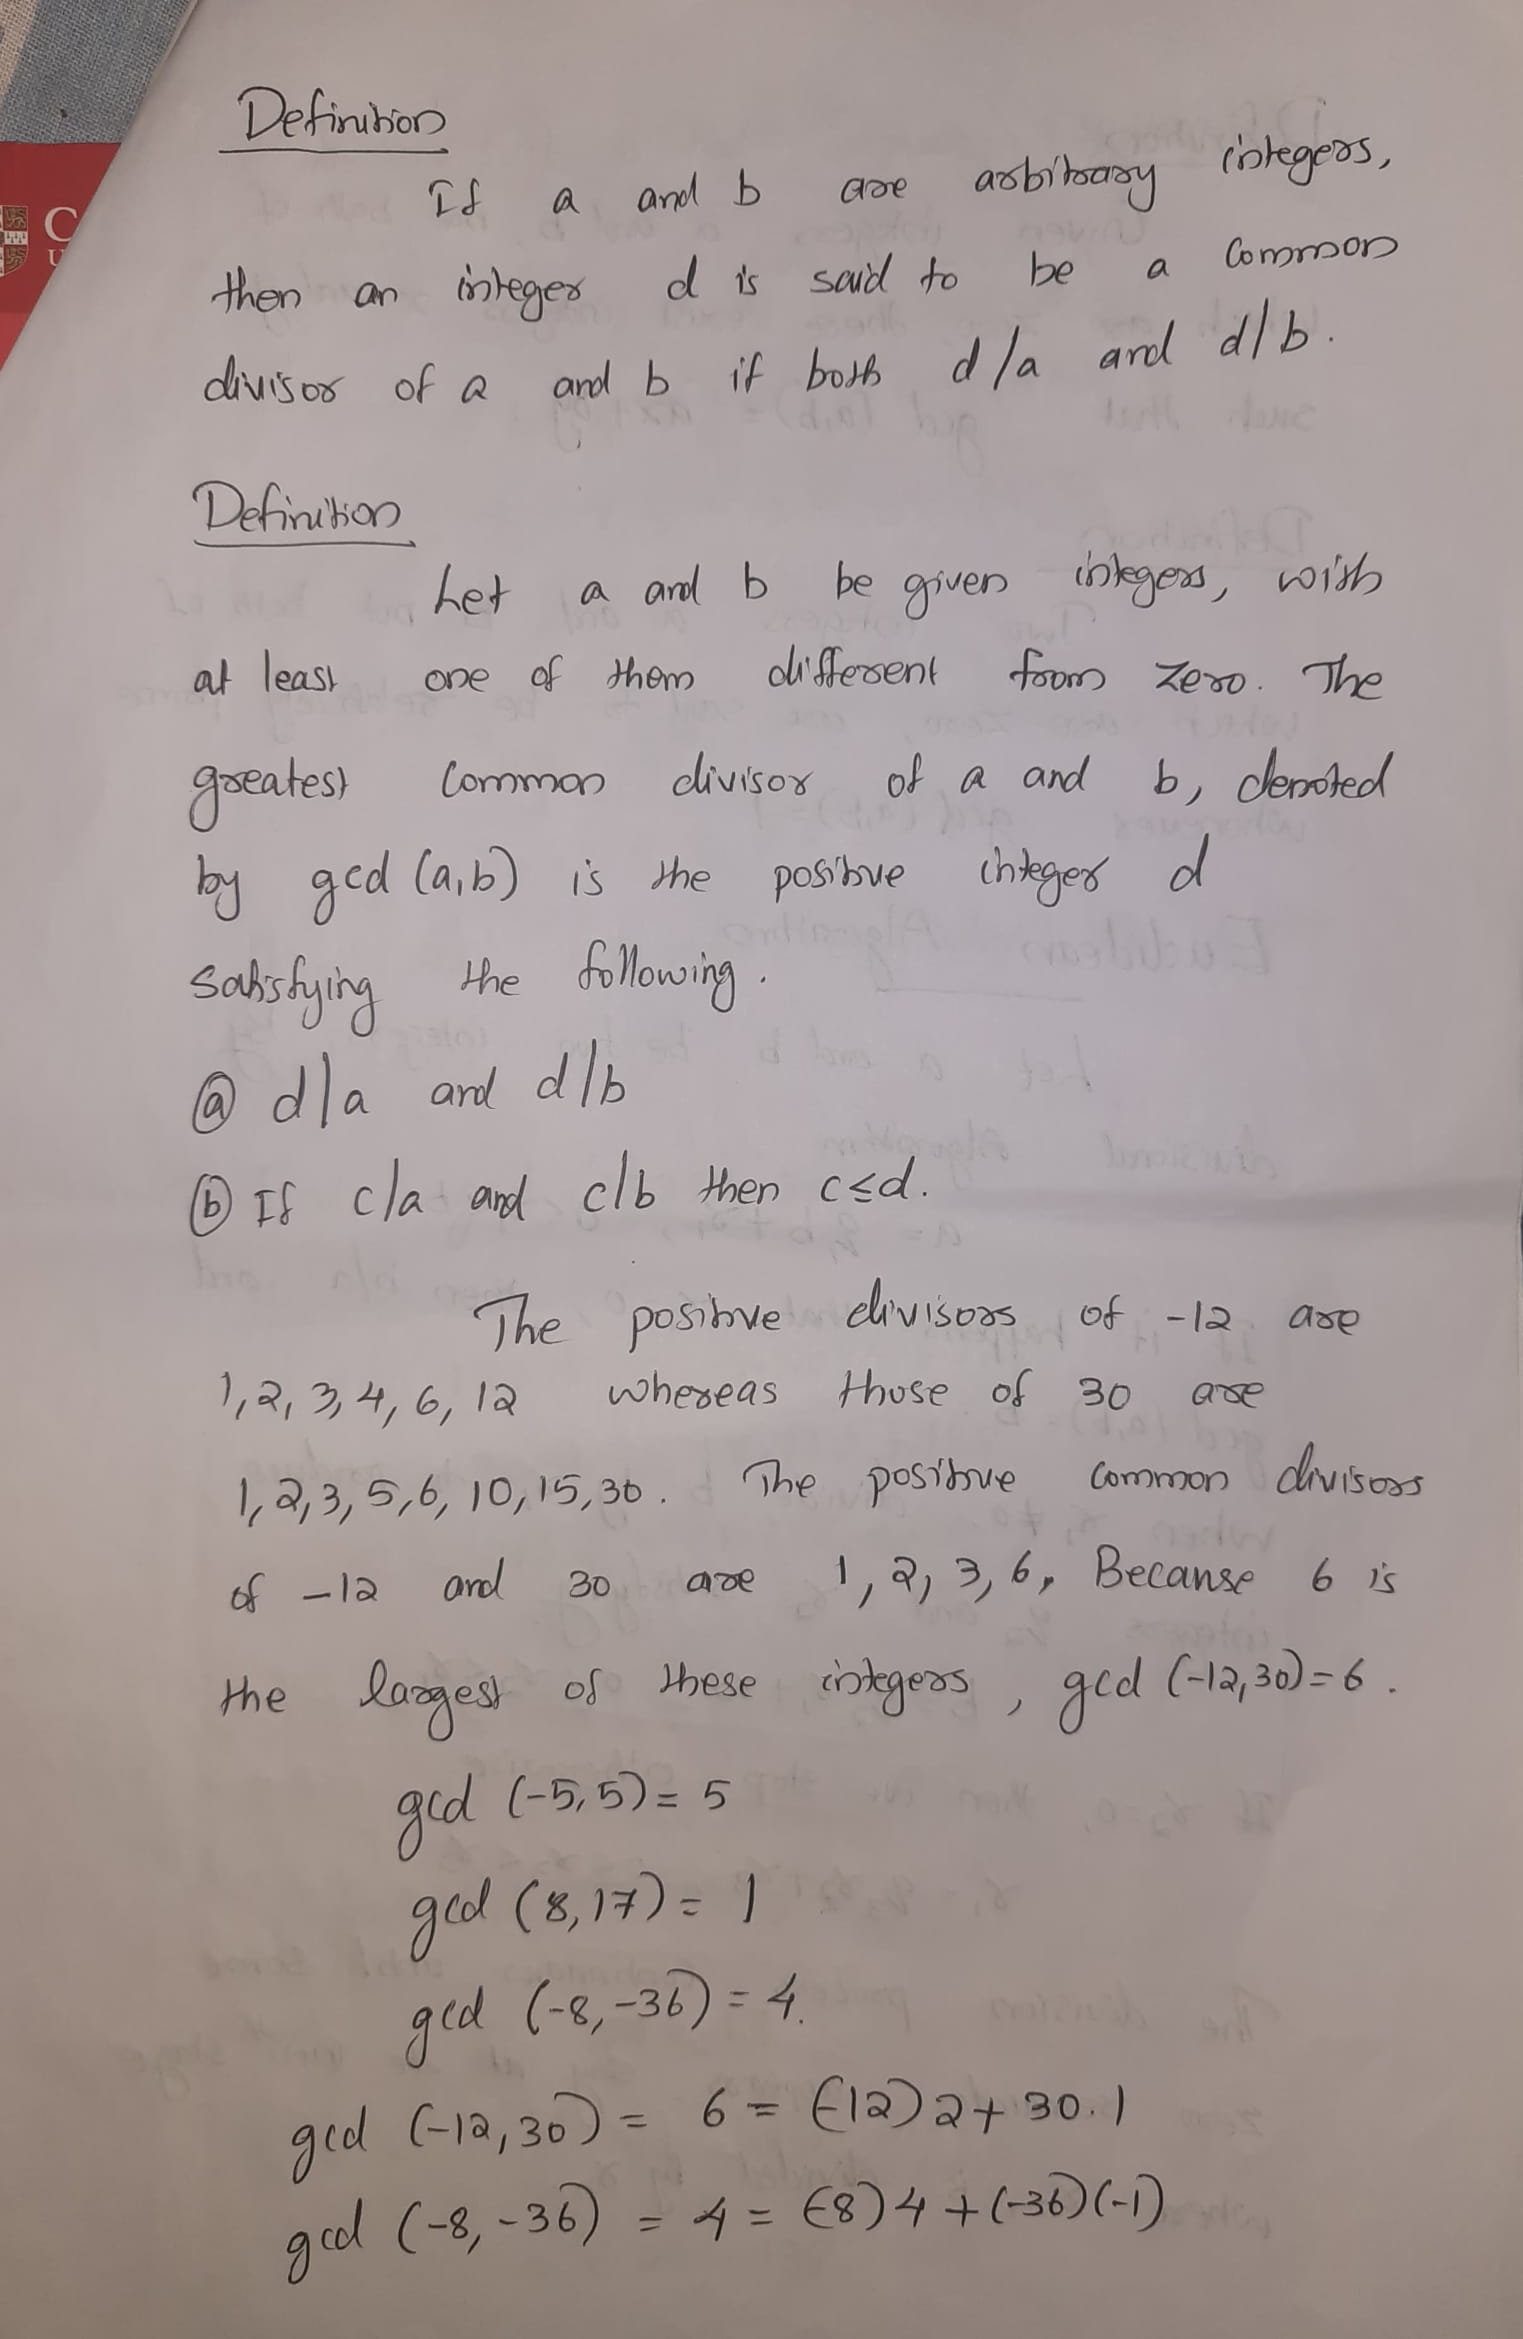 C
U
Definition
If a and b are arbitrary integers,
then an integer d is said to be a common
divisor of a and b if both d/a and d/b.
Definition
Let a and b be given integers, with
at least one of them different from zero. The
greatest common divisor of a and b, denoted
by gcd (a,b) is the positive integer d
satisfying the following.
ⓐ d|a and d/b
ⓑ If c/a and c/b then c≤d.
The positive divisors of -12 are
1,2,3,4,6,12 whereas those of 30 are
1,2,3,5,6,10,15,30. The positive common divisors
of -12 and 30 are 1,2,3,6, Because 6 is
the largest of these integers, gcd (-12,30)=6.
gcd (-5,5)= 5
gcd (8,17)= 1
gcd (-8,-36)= 4.
gcd (-12,30) = 6 = (-12)2+30.1
gcd (-8,-36) = 4 = (-8)4+(-36)(-1)